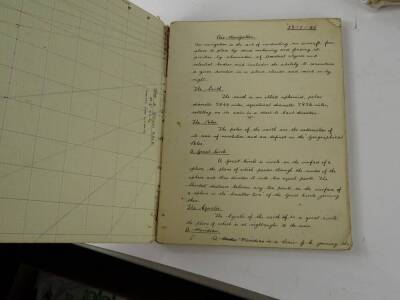 Air Navigation
Air navigation is the art of conducting an aircraft from
place to place by dead reckoning and fixing its
position by observation of terrestrial objects and
celestial bodies and includes the ability to
a given in a stated and wind in any
The Earth
The earth is an oblate spheroid, polar
diameter miles, equatorial diameter miles,
rotating on its axis in a west to east direction.
The Poles
The poles of the earth are the extremities of
its axis of revolution and are defined as the Geographical
Poles.
A Great Circle
A Great Circle is a circle on the surface of a
sphere, the plane of which passes through the centre of the
sphere and thus divides it into two equal parts. The
shortest distance between any two points on the surface of
a sphere is the smaller arc of the Great Circle joining
them.
The Equator
The Equator of the earth is a great circle
the plane of which is at right angles to the axis.
A Meridian
A Meridian is a joining the